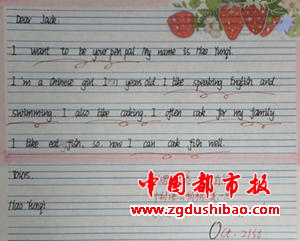 Dear Jack:
I want to be your pen pal My name is Hao Yunqi.
I'm a Chinese girl. I'm 11 years old. I like speaking English and
swimming. I also like cooking. I often cook for my family.
I like eat fish, so now I can cook fish well.
Yours.
Hao Yunqi
中国都市报
www.zgdushibao.com
Oct. 21st